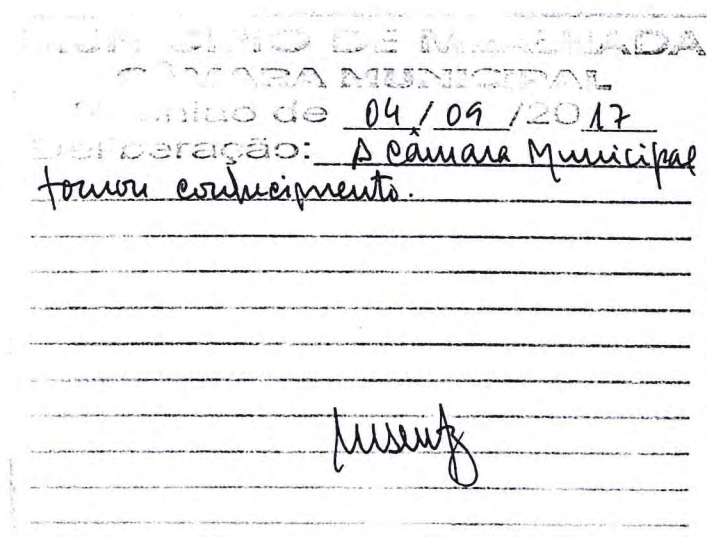 MUNICÍPIO DE MEALHADA
CÂMARA MUNICIPAL
Reunião de 04 / 09 /2017
Deliberação: A Câmara Municipal
tomou conhecimento.